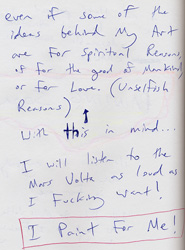 even if some of the
ideas behind My Art
are For Spiritual Reasons,
or for the good of Mankind
or for Love. (Unselfish
Reasons)
With this in mind...
I will listen to the
Mars Volta as loud as
I Fucking want!
I Paint For Me!